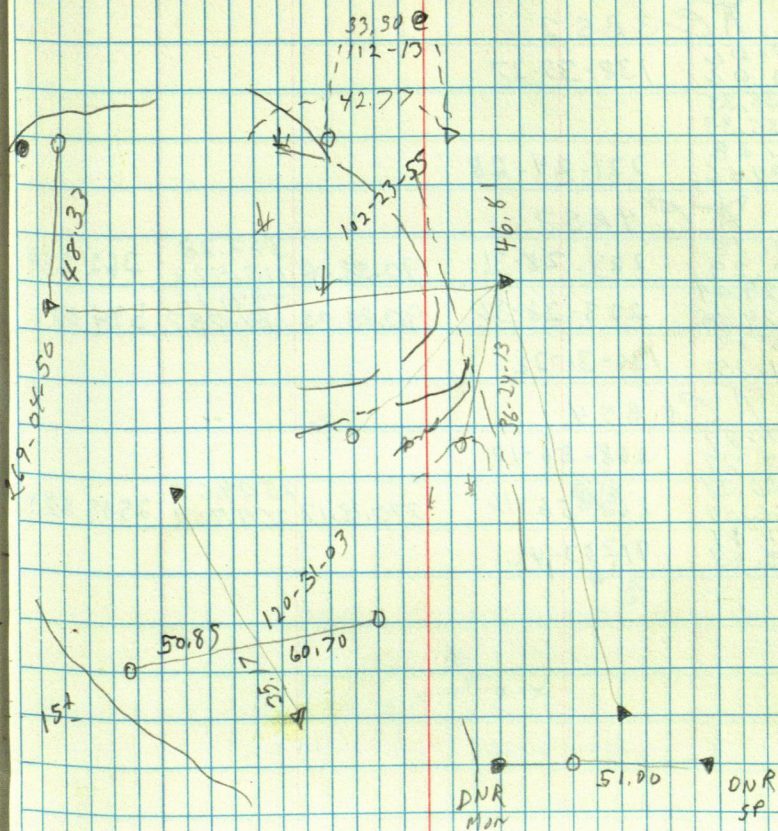 33.90
112-13
42.77
102-23-55
46.61
48.33
169-04-50
36-24-13
120-31-03
50.85
60.70
35.17
15±
51.00
DNR
MON
DNR
SP